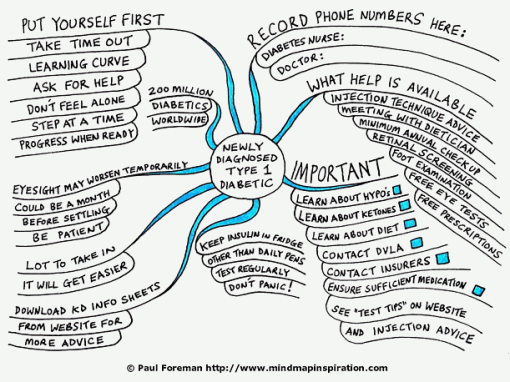 PUT YOURSELF FIRST
TAKE TIME OUT
LEARNING CURVE
ASK FOR HELP
DON'T FEEL ALONE
STEP AT A TIME
PROGRESS WHEN READY
200 MILLION
DIABETICS
WORLDWIDE
RECORD PHONE NUMBERS HERE:
DIABETES NURSE:
DOCTOR:
WHAT HELP IS AVAILABLE
INJECTION TECHNIQUE ADVICE
MEETING WITH DIETICIAN
MINIMUM ANNUAL CHECKUP
RETINAL SCREENING
FOOT EXAMINATION
FREE EYE TESTS
FREE PRESCRIPTIONS
NEWLY
DIAGNOSED
TYPE 1
DIABETIC
EYESIGHT MAY WORSEN TEMPORARILY
COULD BE A MONTH
BEFORE SETTLING
BE PATIENT
LOT TO TAKE IN
IT WILL GET EASIER
DOWNLOAD KD INFO SHEETS
FROM WEBSITE FOR
MORE ADVICE
KEEP INSULIN IN FRIDGE
OTHER THAN DAILY PENS
TEST REGULARLY
DON'T PANIC!
IMPORTANT
LEARN ABOUT HYPO'S
LEARN ABOUT KETONES
LEARN ABOUT DIET
CONTACT DVLA
CONTACT INSURERS
ENSURE SUFFICIENT MEDICATION
SEE "TEST TIPS" ON WEBSITE
AND INJECTION ADVICE
© Paul Foreman http://www.mindmapinspiration.com